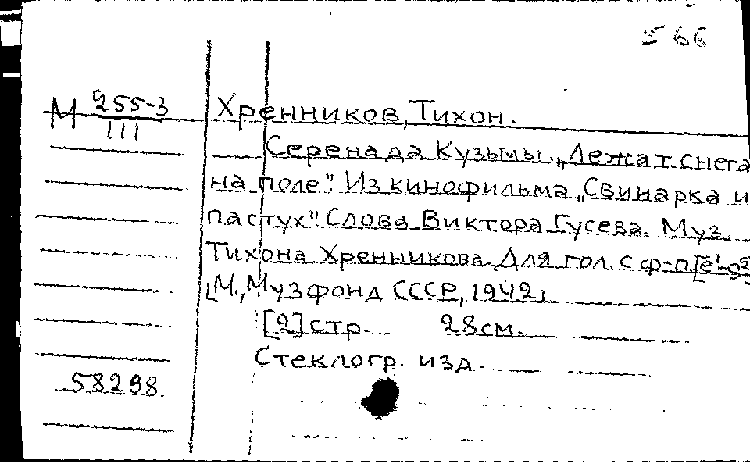 566
М 255-3
III
Хренников, Тихон.
Серенада Кузьмы. „Лежат снега
на поле". Из кинофильма „Свинарка и
пастух". Слова Виктора Гусева. Муз.
Тихона Хренникова. Для гол. с ф-п
[М., Музфонд СССР, 1942]
[2] стр. 28 см.
Стеклогр. изд.
58298.